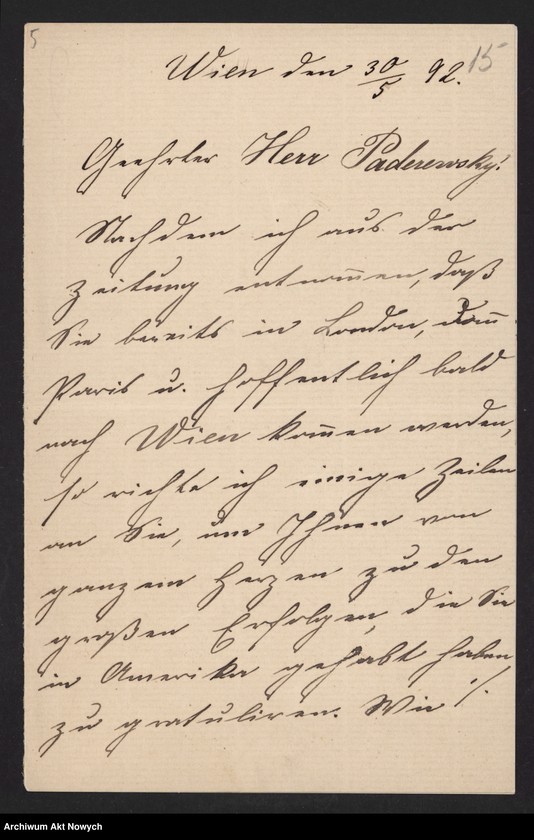 5
15
Wien den 30/5 92.
Geehrter Herr Paderewsky!
Nachdem ich aus der
Zeitung entnom̅en, daß
Sie bereits in London, dan̅
Paris u. hoffentlich bald
nach Wien kom̅en werden,
so richte ich einige Zeilen
an Sie, um Ihnen von
ganzem Herzen zu den
großen Erfolgen, die Sie
in Amerika gehabt haben,
zu gratuliren. Wir ·/.
Archiwum Akt Nowych